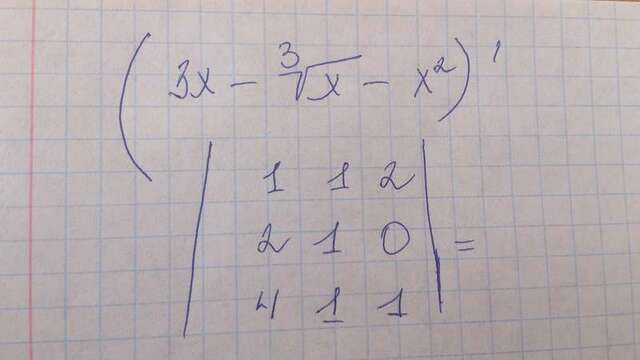 (3x - ∛x - x²)'
| 1 1 2 |
| 2 1 0 | =
| 4 1 1 |